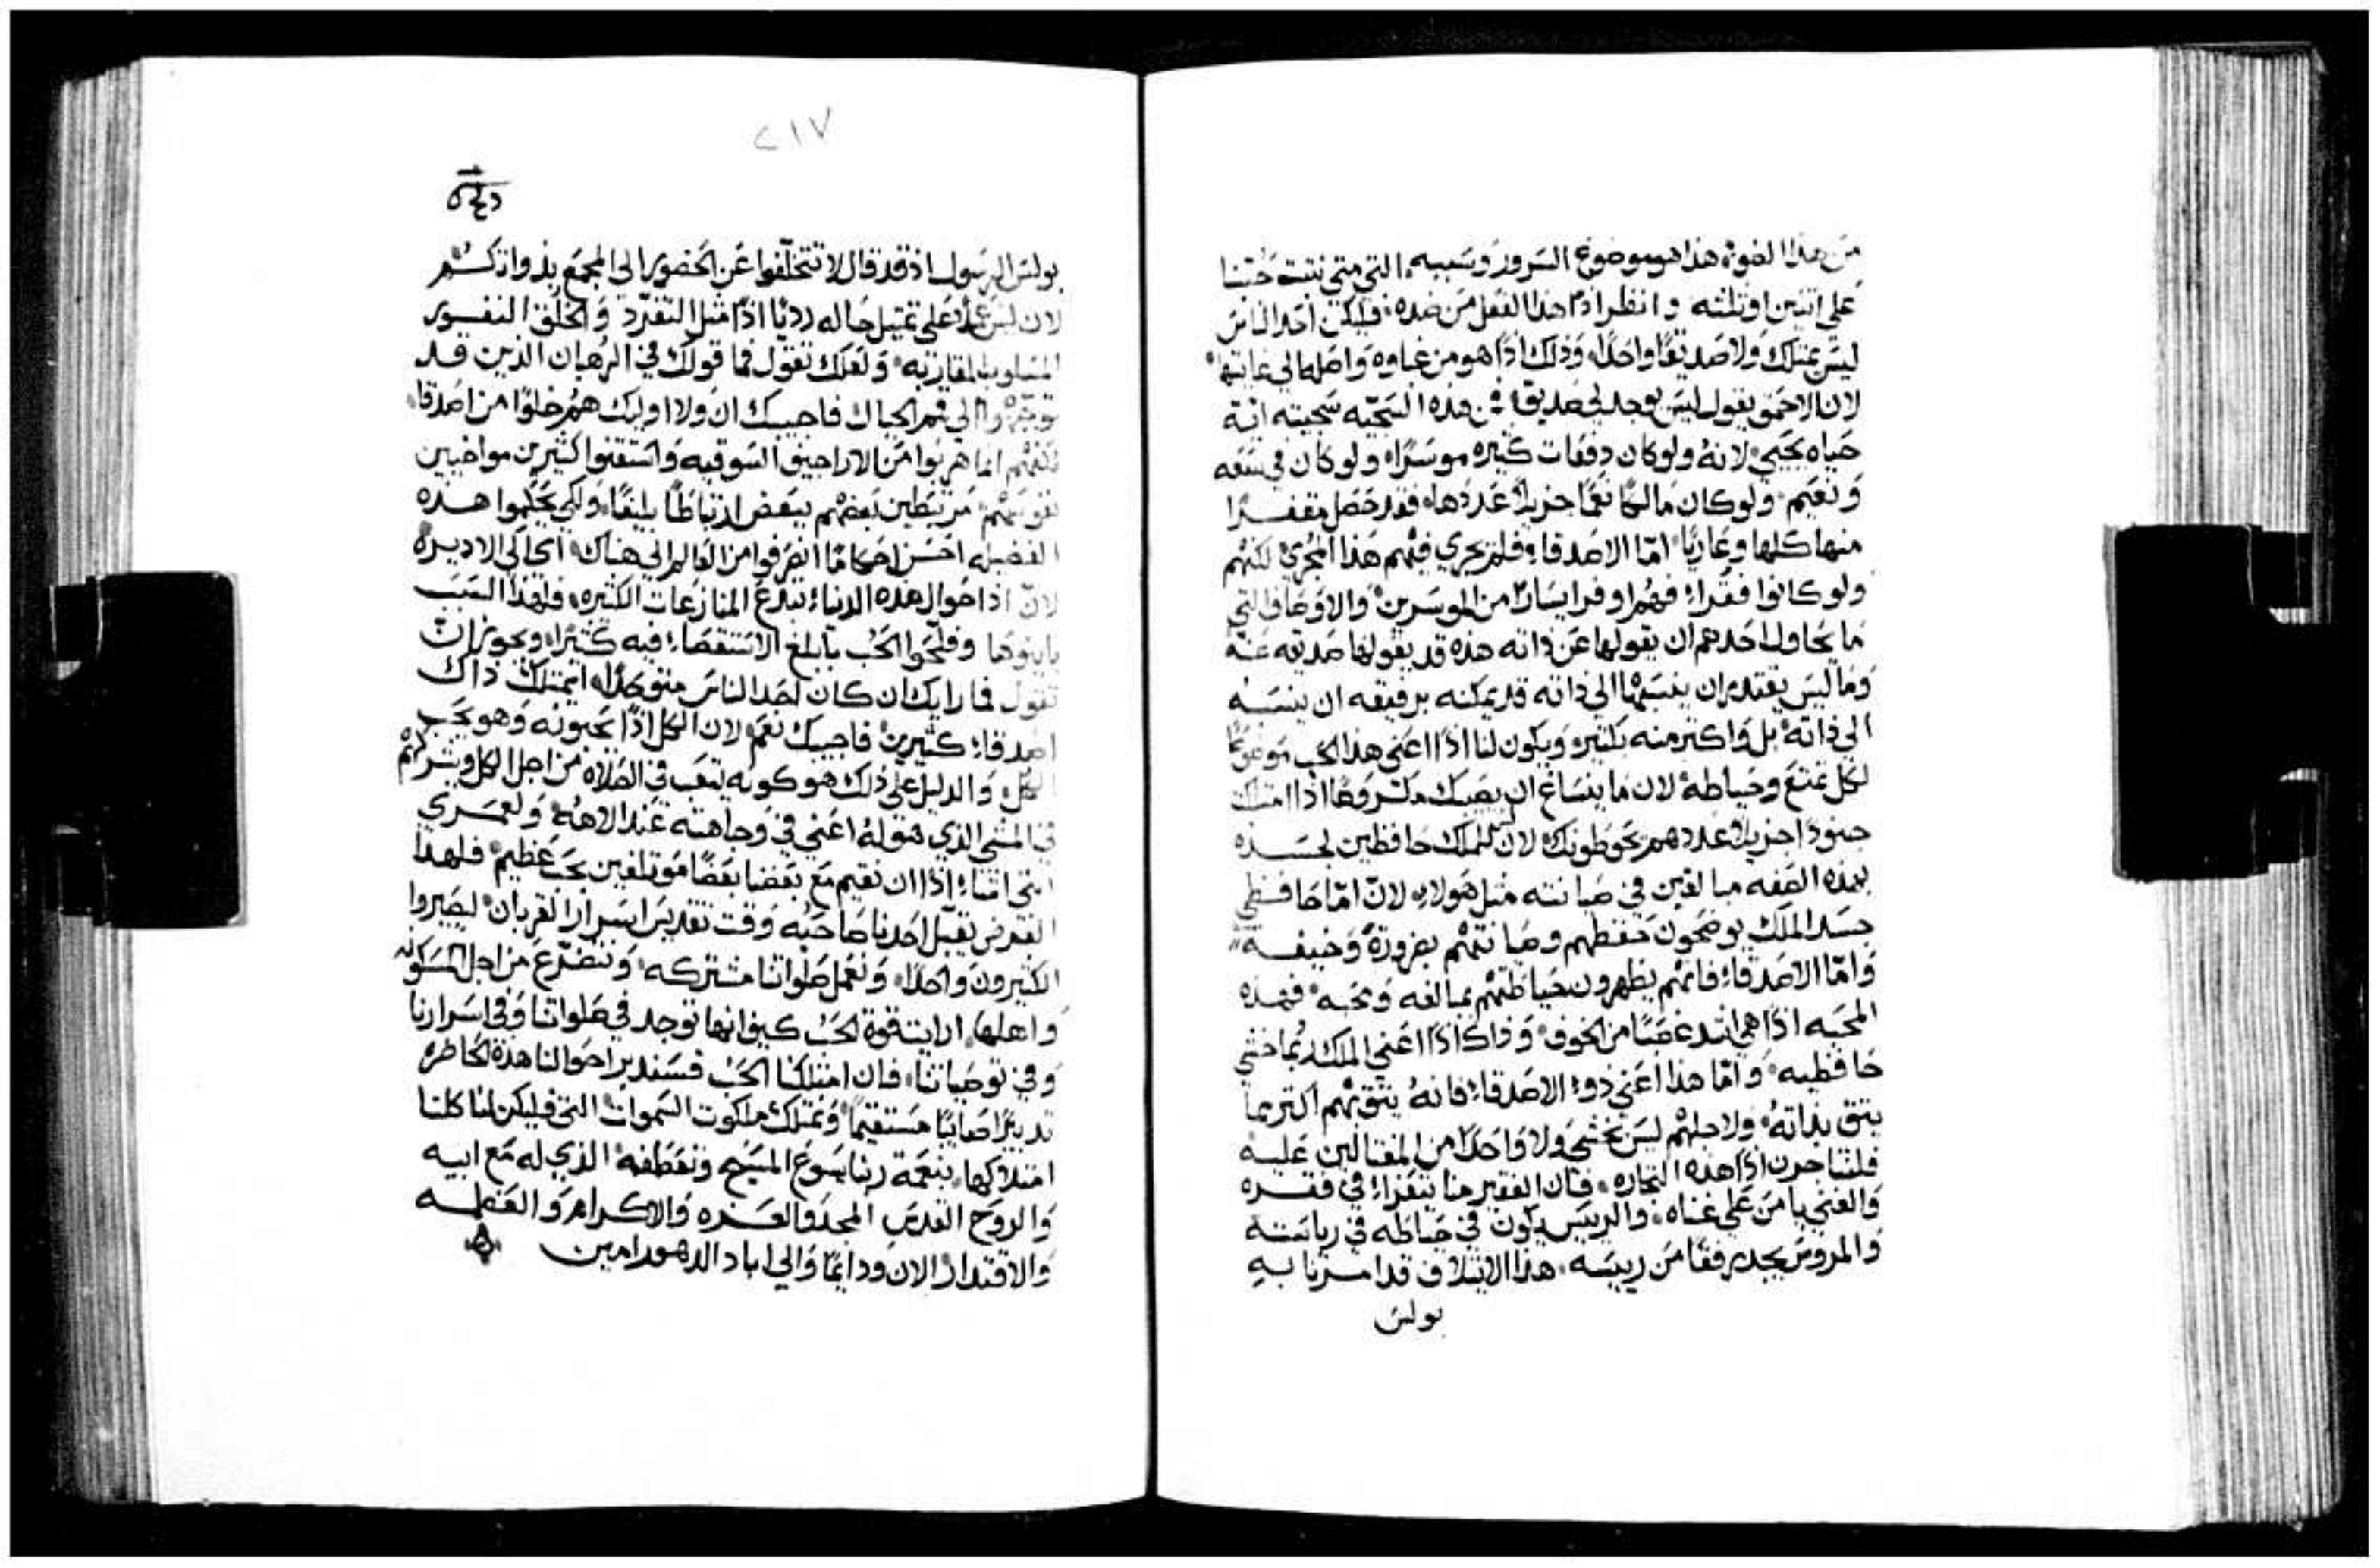 من هذا الضوء هذا هو موضوع السرور وسببه التي متى نتتت حتنا
على اتنين او تلته وانظر اذًا هذا الفعل من ضده فليكن احد الناس
ليس يمتلك ولا صديقًا واحدًا وذلك اذًا هو من غباوه واصله الي غايتها
لان الاحمق يقول ليس يوجد لي صديق فمن هذه السجيّه سجيته اية
حياه يحيي لانهُ ولو كان دفعات كتيره موسرًا ولو كان في سعه
ونعيم ولو كان مالكًا نعمًا جزيلاً عددها فقد حصل مقفرًا
منها كلها وعاريًا امّا الاصدقاء فلم يجري فيهم هذا المجرى لكنهم
ولو كانوا فقراء فهم اوفر ايسارًا من الموسرين والاوصاف التي
ما يحاول احدهم ان يقولها عن ذاته هذه قد يقولها صديقه عنه
وما ليس يقتدر ان ينسبها الي ذاته قد يمكنه برفيقه ان ينسبه
الي ذاته بل واكتر منه بكتير ويكون لنا اذًا اعني هذا الحب موضوعًا
لكل تمتع وحياطه لان ما ينساغ ان يصيبك مكروهًا اذا امتلكت
جنودًا جزيلاً عددهم يحوطونك لان للملك حافظين لجسده
بهذه الصفه مبالغين في صيانته متل هولاء لانّ امّا حافظي
جسد الملك يوضحون حفظهم وصيانتهم بضرورةً وخيفة
وامّا الاصدقاء فانهم يظهرون حياطتهم بمبالغه ومحبه فهذه
المحبه اذًا هي اشد غصبًا من الخوف وذاك اذًا اعني الملك ربما خشي
حافظيه وامّا هذا اعني ذو الاصدقاء فانهُ يتق بهم اكتر مما
يتق بذاتهُ ولاجلهم ليس يخشى ولا واحدًا من المغتالين عليه
فلنتاجرن اذًا هذه التجاره فان الفقير منا يتعزاء في فقره
والغني يامن علي غناه والرييس يكون في حياطه في رياسته
والمروس يجد رفقًا من رييسه هذا الايتلاف قد امرنا به
بولس
٢١٧
بولس الرسول اذ قد قال لا تتخلّفوا عن الحضور الى المجمع بذواتكم
لان ليس عملاً على تمتيل حاله رديًا اذًا متل التفرّد والخلق النفور
المقاربه ولعلك تقول فما قولك في الرهبان الذين قد
الي قمم الجبال فاجيبك ان ولا اوليك هم خلوًا من اصدقاء
لكنهم انما هربوا من الاراجيف السوقيه واستقنوا كتيرين مواخيين
نفوسهم مرتبطين بعضهم ببعض ارتباطًا بليغًا ولكي يحكموا هذه
الفضيله احسن احكامًا انصرفوا من العالم الي هناك اي الي الاديره
لانّ اذ احوال هذه الدنيا تبدع المنازعات الكتيره فلهذا السبب
وفلّحوا الحب بابلغ الاستقصاء فيه كتيرًا ويجوز ان
تقول فما رايك ان كان احد الناس متوحدًا ايمتلك ذاك
اصدقاء كتيرين فاجيبك نعم لان الكل اذًا يحبونه وهو يحب
الكل والدليل علي ذلك هو كونه يتعب في الصلاه من اجل الكل ويشركهم
في الشي الذي هو لهُ اعني في وجاهته عند الالاه ولعمري
اذًا ان نقيم مع بعضنا بعضًا موتلفين بحب عظيم فلهذا
الغرض يقبّل احدنا صاحبه وقت تقديس اسرار القربان ليصيروا
الكتيرون واحدًا ونعمل صلواتنا مشتركه ونتضرّع من اجل المسكونه
واهلها ارايت قوة الحب كيف انها توجد في صلواتنا وفي اسرارنا
وفي توصياتنا فان امتلكنا الحب فسندبر احوالنا هذه الحاضره
تدبيرًا صايبًا مستقيمًا ونمتلك ملكوت السموات التي فليكن لنا كلنا
امتلاكها بنعمة ربنا يسوع المسيح وتعطفه الذي له مع ابيه
والروح القدس المجد والعزه والاكرام والعظمه
والاقتدار الان ودايمًا والي اباد الدهور امين